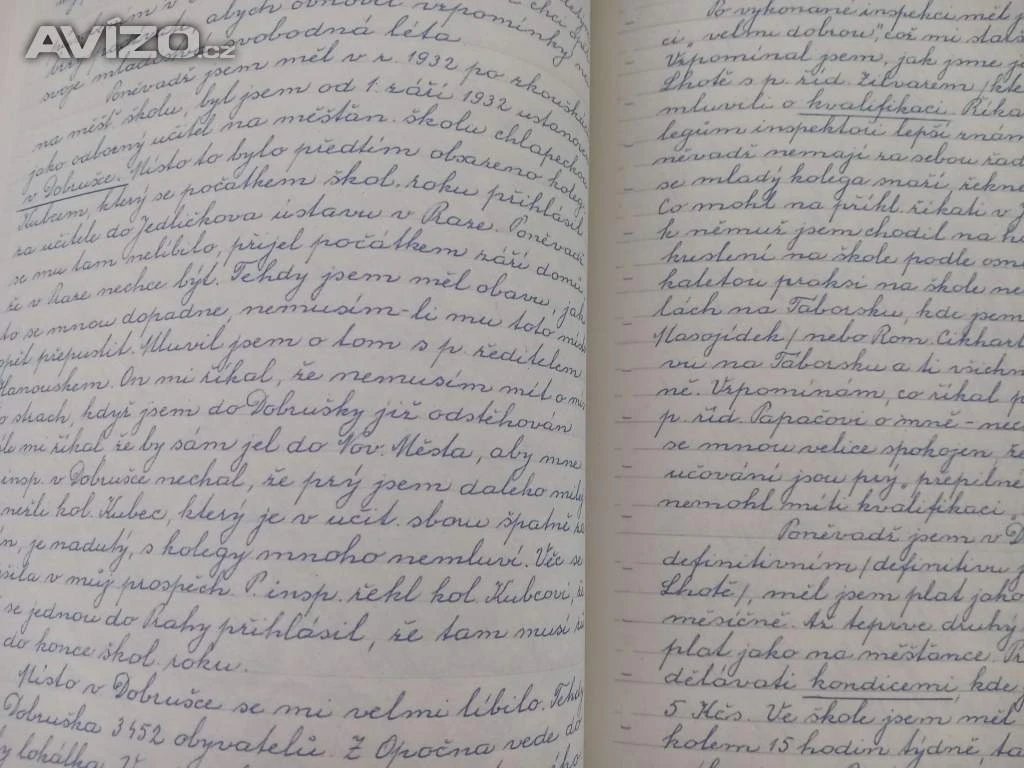 AVÍZO.cz
abych obnovil vzpomínky na
svoje mladá svobodná léta.
Poněvadž jsem měl v r. 1932 po zkoušká
na měšť. školu, byl jsem od 1. září 1932 ustanove
jako odborný učitel na měšťan. školu chlapeckou
v Dobrušce. Místo to bylo předtím obsazeno kolegou
Kubcem, který se počátkem škol. roku přihlásil
za učitele do Jedličkova ústavu v Praze. Poněvadž
se mu tam nelíbilo, přijel počátkem září domů,
že v Praze nechce být. Tehdy jsem měl obavu, jak
to se mnou dopadne, nemusím-li mu toto místo
opět přepustit. Mluvil jsem o tom s p. ředitelem
Hanouskem. On mi říkal, že nemusím mít o mís
o strach, když jsem do Dobrušky již odstěhován
mi říkal že by sám jel do Nov. Města, aby mne
insp. v Dobrušce nechal, že prý jsem daleko milej
nežli kol. Kubec, který je v učit. sboru špatně za
n, je nadutý, s kolegy mnoho nemluví. Věc se
v můj prospěch. P. insp. řekl kol. Kubcovi, že
se jednou do Prahy přihlásil, že tam musí
do konce škol. roku.
Místo v Dobrušce se mi velmi líbilo. Tehdy
Dobruška 3452 obyvatelů. Z Opočna vede do
lokálka.
Po vykonané inspekci měl j
ci „velmi dobrou", což mi sta
Vzpomínal jsem, jak jsme je
Lhotě s p. říd. Zilvarem /kte
mluvili o kvalifikaci. Říka
legům inspektoři lepší znám
něvadž nemají za sebou řad
se mladý kolega snaží, řekne
Co mohl na příkl. říkati v J
k němuž jsem chodil na h
kustení na škole podle osn
kaletou praksi na škole ne
lách na Táborsku, kde jsem
Masojídek /nebo Rom. Cikhart
vu na Táborsku a ti všichn
ně. Vzpomínám, co říkal p
p. říd. Papáčovi o mně - nec
se mnou velice spokojen, že
učování jsou prý „přepilné
nemohl míti kvalifikaci „
Poněvadž jsem v D
definitivním /definitivu j
Lhotě/, měl jsem plat jako
měsíčně. Až teprve druhý
plat jako na měšťance. Př
dělávati kondicemi, kde j
5 Kčs. Ve škole jsem měl
kolem 15 hodin týdně, ta